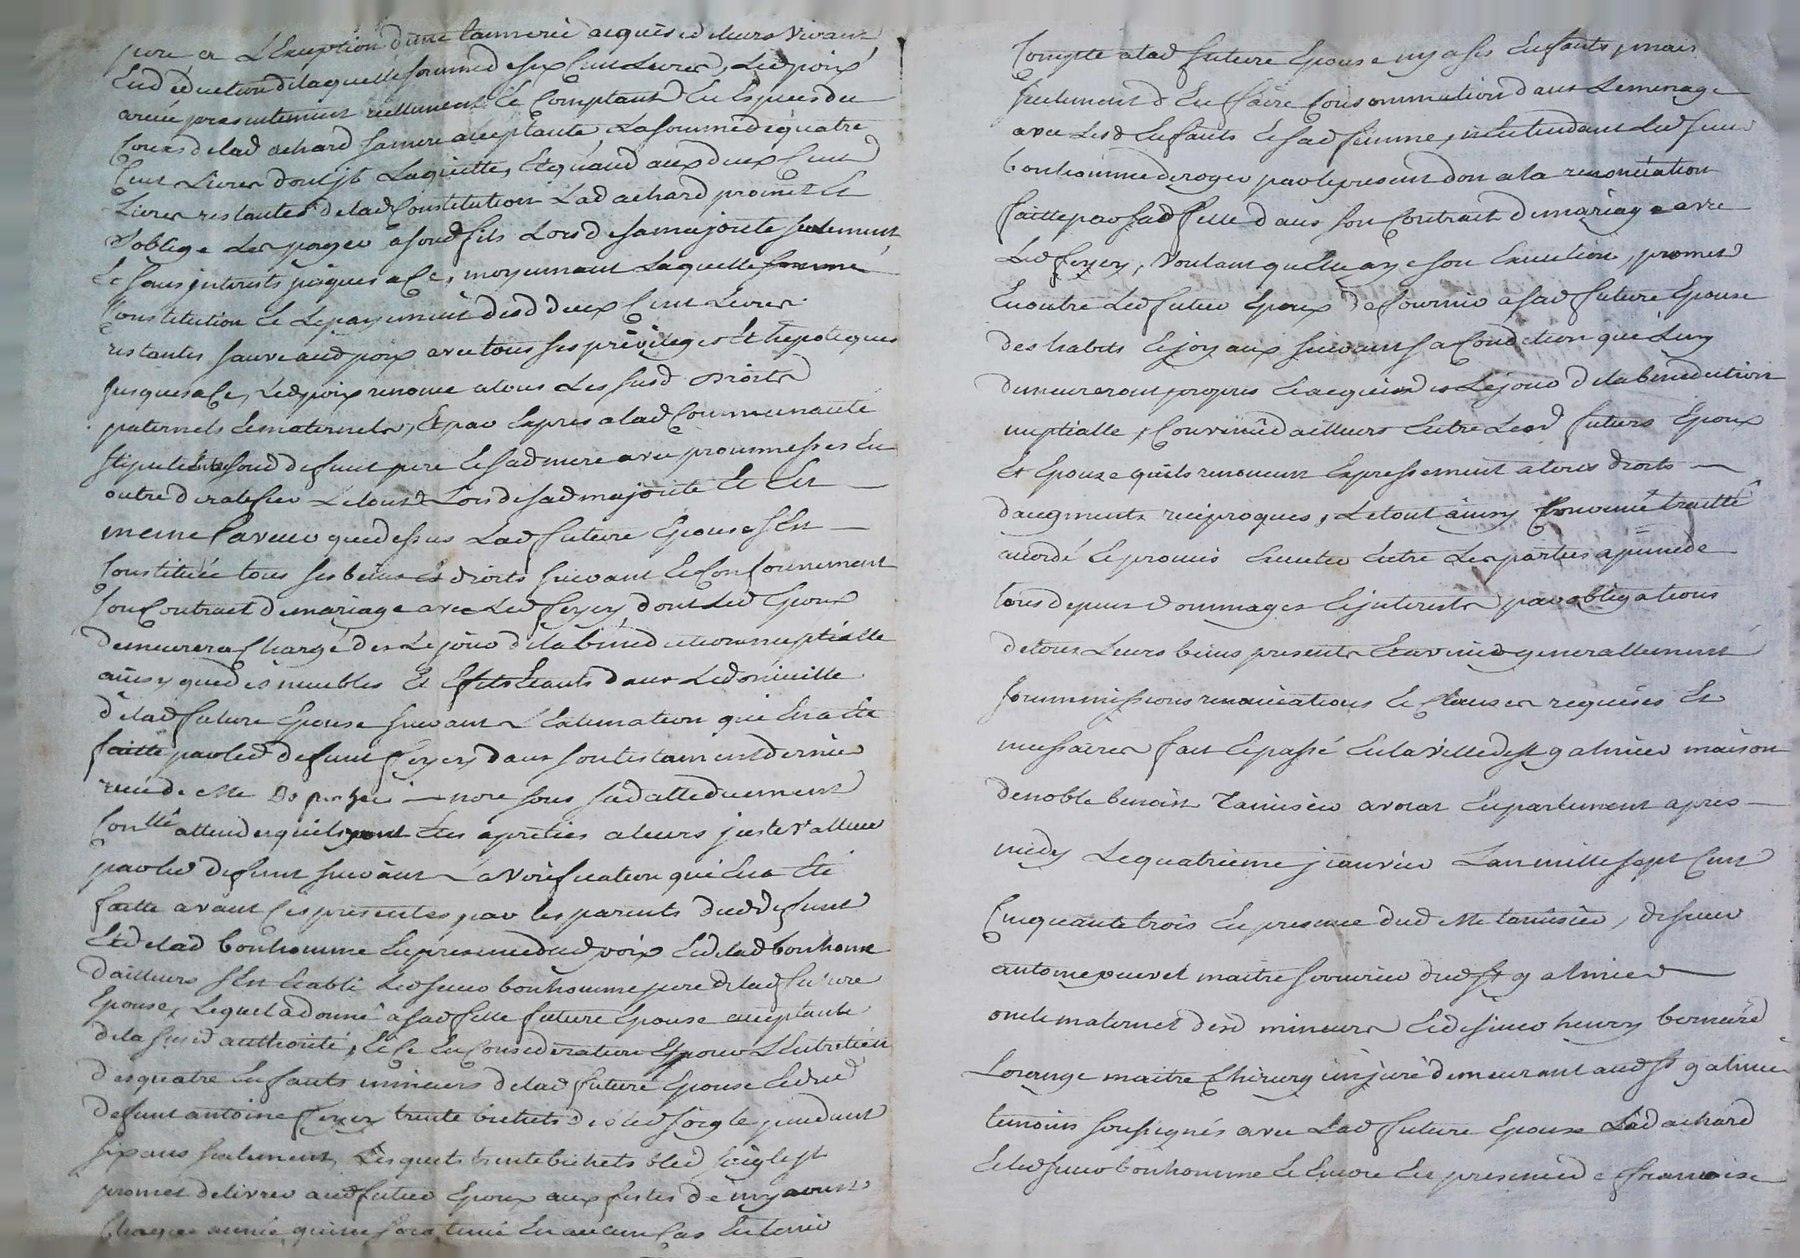 pere a L'Exception d'une tannerie acquise de leurs vivant
En deduction de laquelle somme de six Cent Livres, Led poix
areçu presentement reellement Et Comptant En Espices du
Cours de lad achard sa mere acceptante La somme de quatre
Cent Livres dont jl Laquitte, Et quand aux deux Cent
Livres restantes de lad Constitution Lad achard promet Et
s'oblige Les payer a sond fils Lors de sa majorité seulement
Et sans interests jusques a Ce, moyennant Laquelle somme
Constitution Et Le payement desd deux Cent Livres
restantes sauve aud poix avec tous ses privileges Et hipoteques
jusques a Ce, Led poix renonce a tous Les susd Droits
paternels Et maternels, Et par Expres a lad Communauté
stipulée Entre sond defunt pere Et sad mere avec proumesses En
outre de ratifier Le tout Lors de sad majorité Et En
meme faveur que dessus Lad future Epouse s'En
Constituée tous ses biens Et droits suivant Et Conformement
son Contrat de mariage avec Led feyey dont Led Epoux
demeurera Chargé des Le jour de la bénédiction nuptialle
ainsy que des meubles Et Effets Etants dans Le domicille
de lad future Epouse suivant L'Estimation que En a Eté
faitte par led defunt feyey dans son testament dernier
receu de Me nore sous sad datte duement
Conllé attendu qu'ils sont Etes apretiés a leurs juste valleur
par led defunt suivant La Verification que En a Eté
faitte avant Ces presentes, par les parents dud defunt
Et de lad bonhomme En presence dud poix Et de lad bonhome
D'ailleurs s'En Etabli Led sieur bonhomme pere de lad future
Epouse, Lequel a donné a sad fille future Epouse acceptante
de la susd authorité, Et Ce En Consideration Et pour L'Entretien
des quatre Enfants mineurs de lad future Epouse Et dud
defunt antoine feyey trente bichets de bled soigle pendant
six ans seulement, Lesquels trente bichets bled soigle jl
promet delivrer aud futur Epoux aux festes de my aoust
Chaque année, qui ne sera tenu En aucun Cas En tenir
Compte a lad future Epouse ny a ses Enfants, mais
seulement d'En faire Consommation dans Le menage
avec Lesd Enfants Et sad femme, n'Entendant Led sieur
bonhomme deroger par le present don a la renonciation
faitte par sad fille dans son Contrat de mariage avec
Led feyey, Voulant qu'Elle aye son Execution, promet
En outre Led futur Epoux de fournir a sad future Epouse
des habits Et joyaux suivant sa Condition qui Luy
demeureront propres Et acquis des Le jour de la bénédiction
nuptialle, Convenu d'ailleurs Entre Lesd futurs Epoux
Et Epouse qu'ils renoncent Expressement a tous droits
d'augments reciproques, Le tout ainsy Convenu traitté
accordé Et promis Executer Entre Les parties a peine de
tous depens dommages Et interests par obligations
de tous Leurs biens presents Et avenir generallement
soummissions renonciations Et Clauses requises Et
necessaires fait Et passé En la ville de st galmier maison
de noble benoist Tamisier avocat En parlement apres
midy Le quatrieme jeanvier L'an mille sept Cent
Cinquante trois En presence dud Me tamisier, de sieur
antoine maitre serrurier dud st galmier
oncle maternel desd mineurs Et de sieur henry bernard
Lorange maitre Chirurgien juré demeurant aud st galmier
temoins soussignés avec Lad future Epouse Lad achard
Et led sieur bonhomme Et Encore En presence de françoise